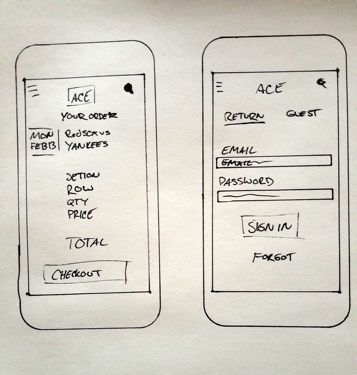 ACE
YOUR ORDER
MON
FEB13
REDSOX VS
YANKEES
SETION
ROW
QTY
PRICE
TOTAL
CHECKOUT
ACE
RETURN GUEST
EMAIL
EMAIL
PASSWORD
SIGN IN
FORGOT